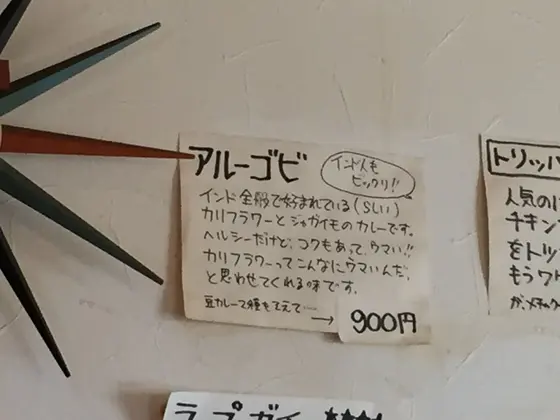 アルーゴビ
インド人も
ビックリ!!
インド全般で好まれている(らしい)
カリフラワーとジャガイモのカレーです。
ヘルシーだけど、コクもあって、ウマい!!
カリフラワーってこんなにウマいんだ、
と思わせてくれる味です。
豆カレー2種をそえて……
→ 900円
トリッパ
人気の
チキン
をトッ
もうワ
が、
ラプガイ